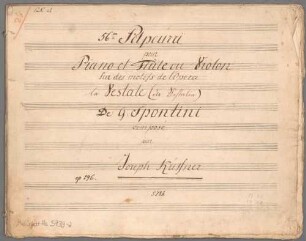 56.e Potpourri
pour
Piano et Flute ou Violon
sur des motifs de l'Opera
la Vestale (die Vestalin)
De G Spontini
composé
par
Joseph Küffner
op 196.